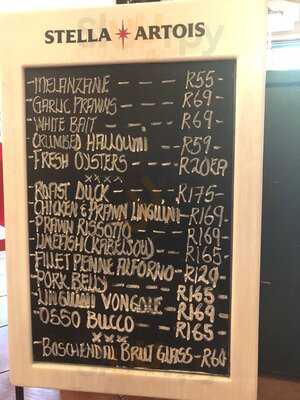 STELLA ARTOIS
MELANZANE - - - R55 -
GARLIC PRAWNS - - R69 -
WHITE BAIT - - - R69 -
CRUMBED HALLOUMI - R59 -
FRESH OYSTERS - - R20EA
xxxx
ROAST DUCK - - - R175 -
CHICKEN & PRAWN LINGUINI - R169 -
PRAWN RISSOTTO - - R169
LINEFISH - - R165
FILLET PENNE ALFORNO - R129
PORK BELLY - - - R165
LINGUINI VONGOLE - - R169
OSSO BUCCO - - - R165
xxx
- BOSCHENDAL BRUT GLASS - R60